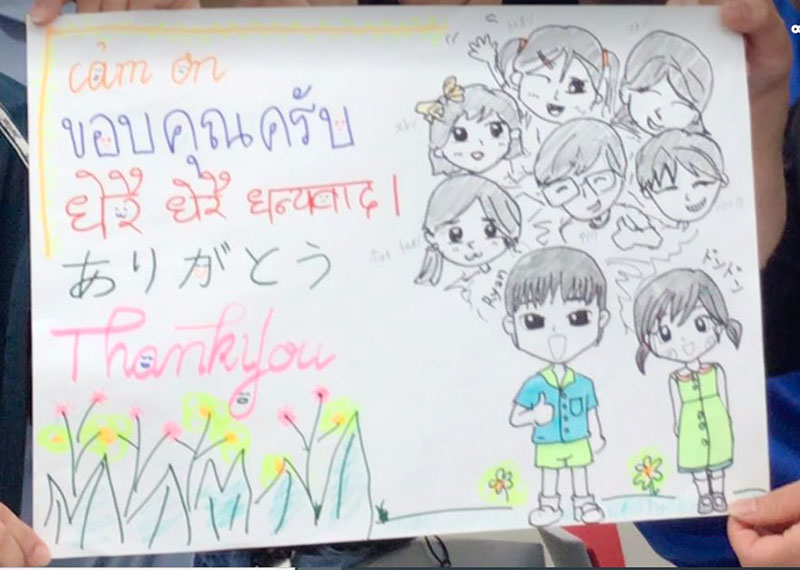 cảm ơn
ขอบคุณครับ
धेरै धेरै धन्यवाद।
ありがとう
Thank you
Ryan
ドンドン